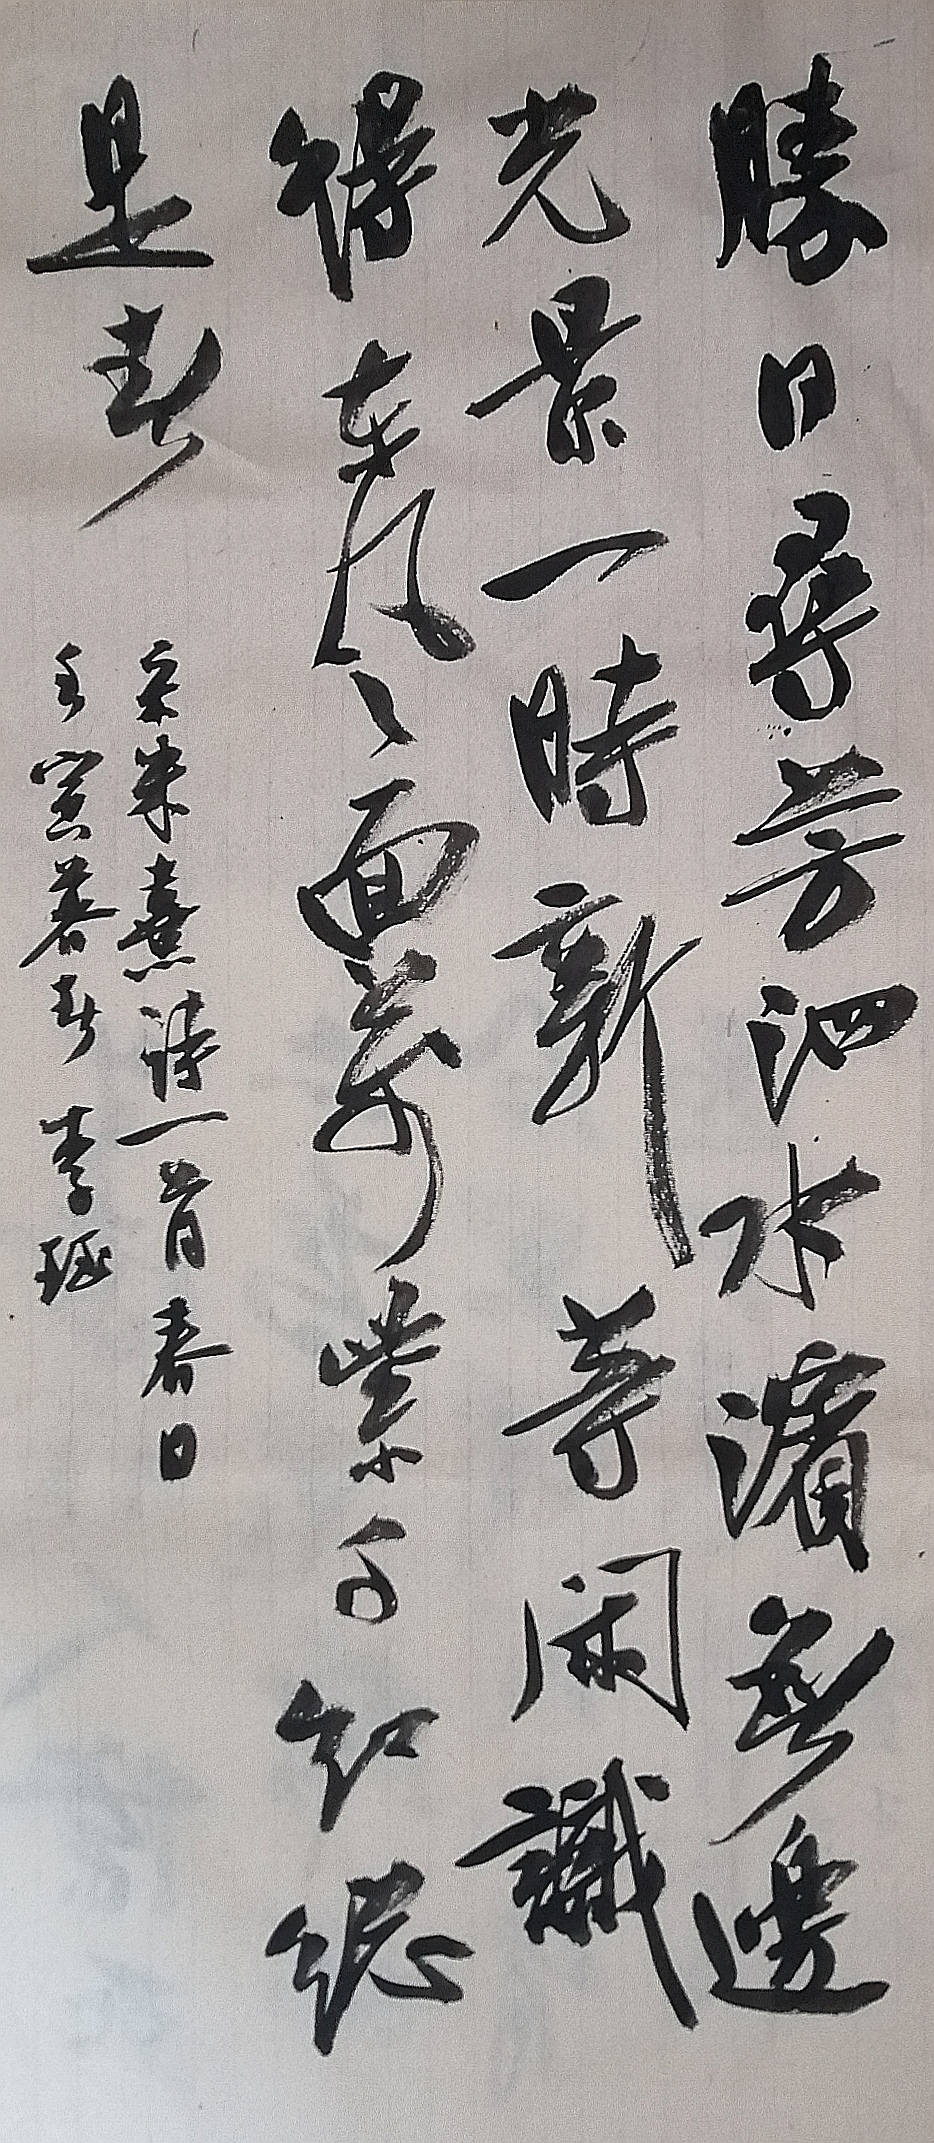 勝日尋芳泗水濱無邊
光景一時新等閑識
得東風面萬紫千紅總
是春
宋朱熹詩一首春日
壬寅暮春 李